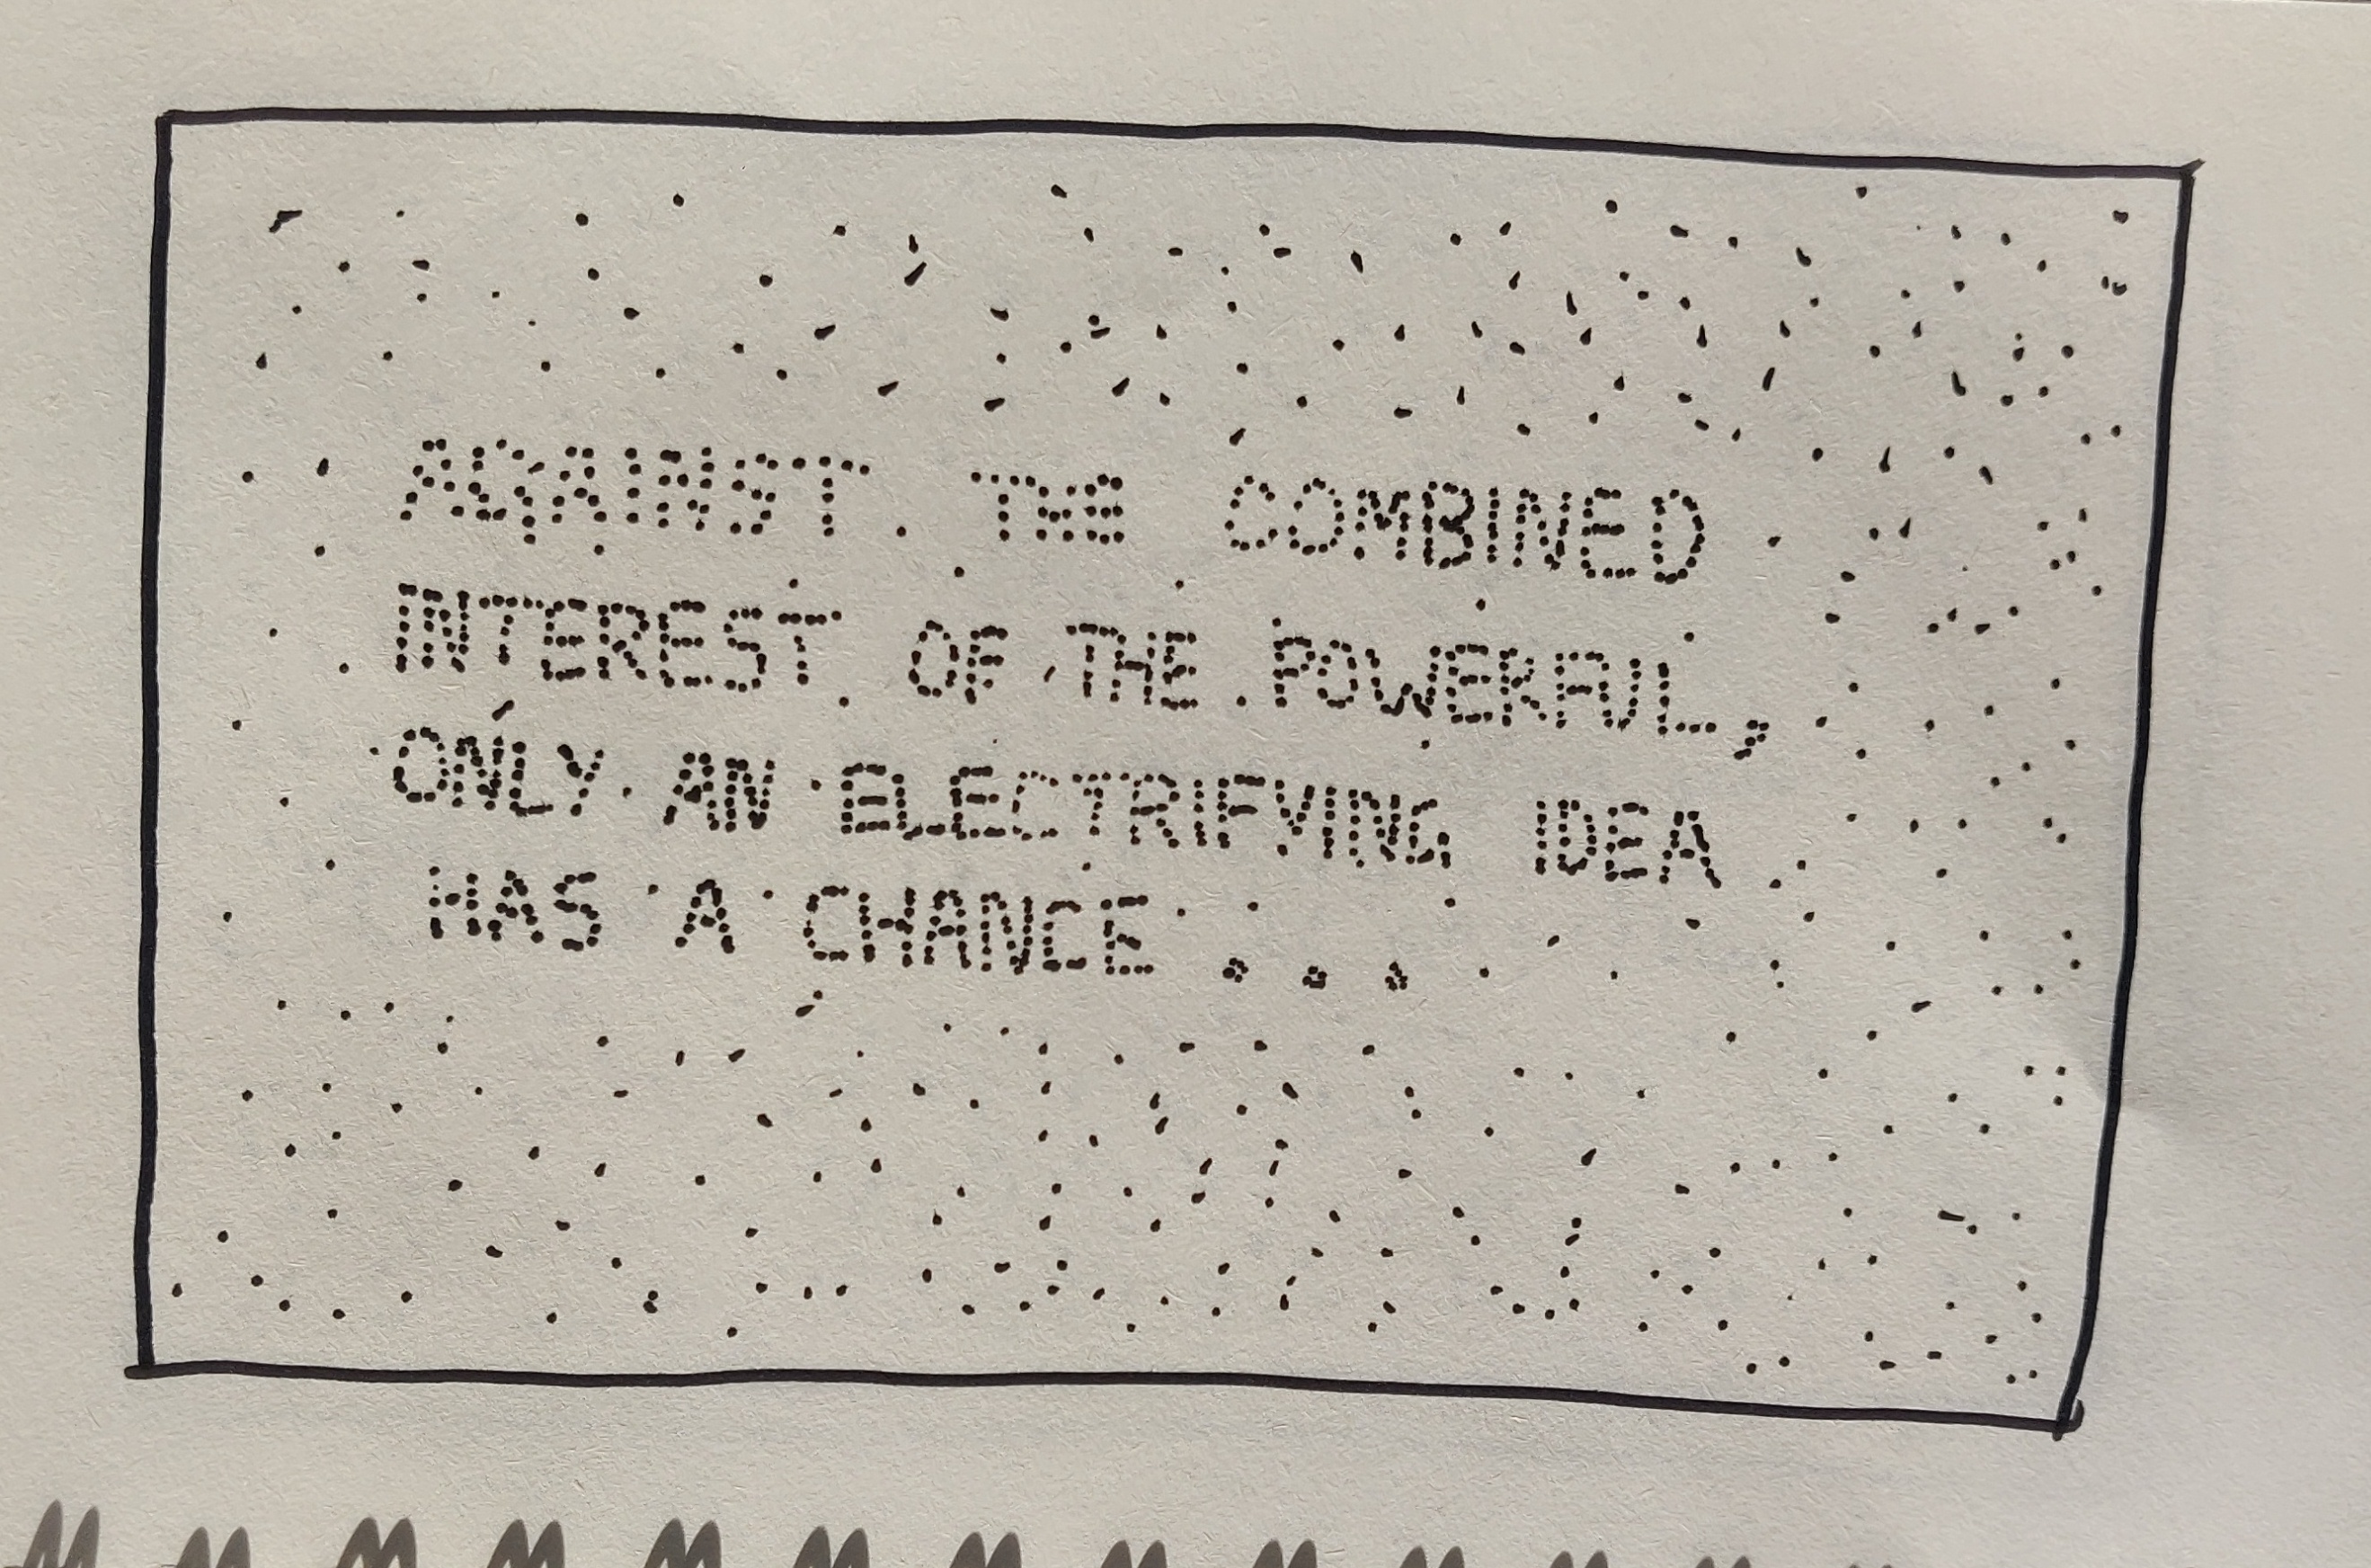 AGAINST THE COMBINED
INTEREST OF THE POWERFUL,
ONLY AN ELECTRIFYING IDEA
HAS A CHANCE...